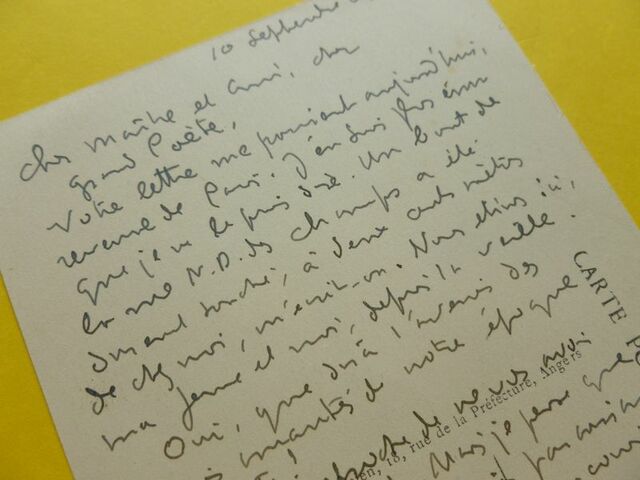 10 septembre
Cher Maître et ami, cher
grand Poète,
Votre lettre me parvient aujourd'hui,
revenue de Paris. J'en suis plus ému
que je ne le puis dire. Un bout de
la rue N.D. des Champs a été
touché, à deux cents mètres
de chez moi, m'écrit-on. Nous étions ici,
ma femme et moi, depuis la veille.
Oui, que dira l'avenir des
de notre époque
!
de nous avoir
Mais je pense que
pas
CARTE P
18, rue de la Préfecture, Angers